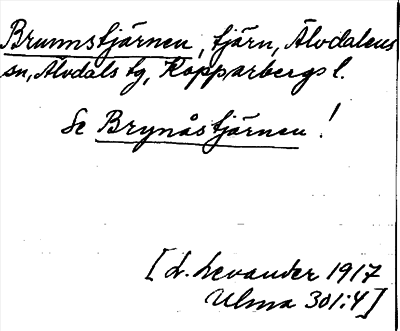 Brunnstjärnen, tjärn, Älvdalens
sn, Älvdals tg, Kopparbergs l.
Se Brynåstjärnen!
[L. Levander 1917
Ulma 301:4]